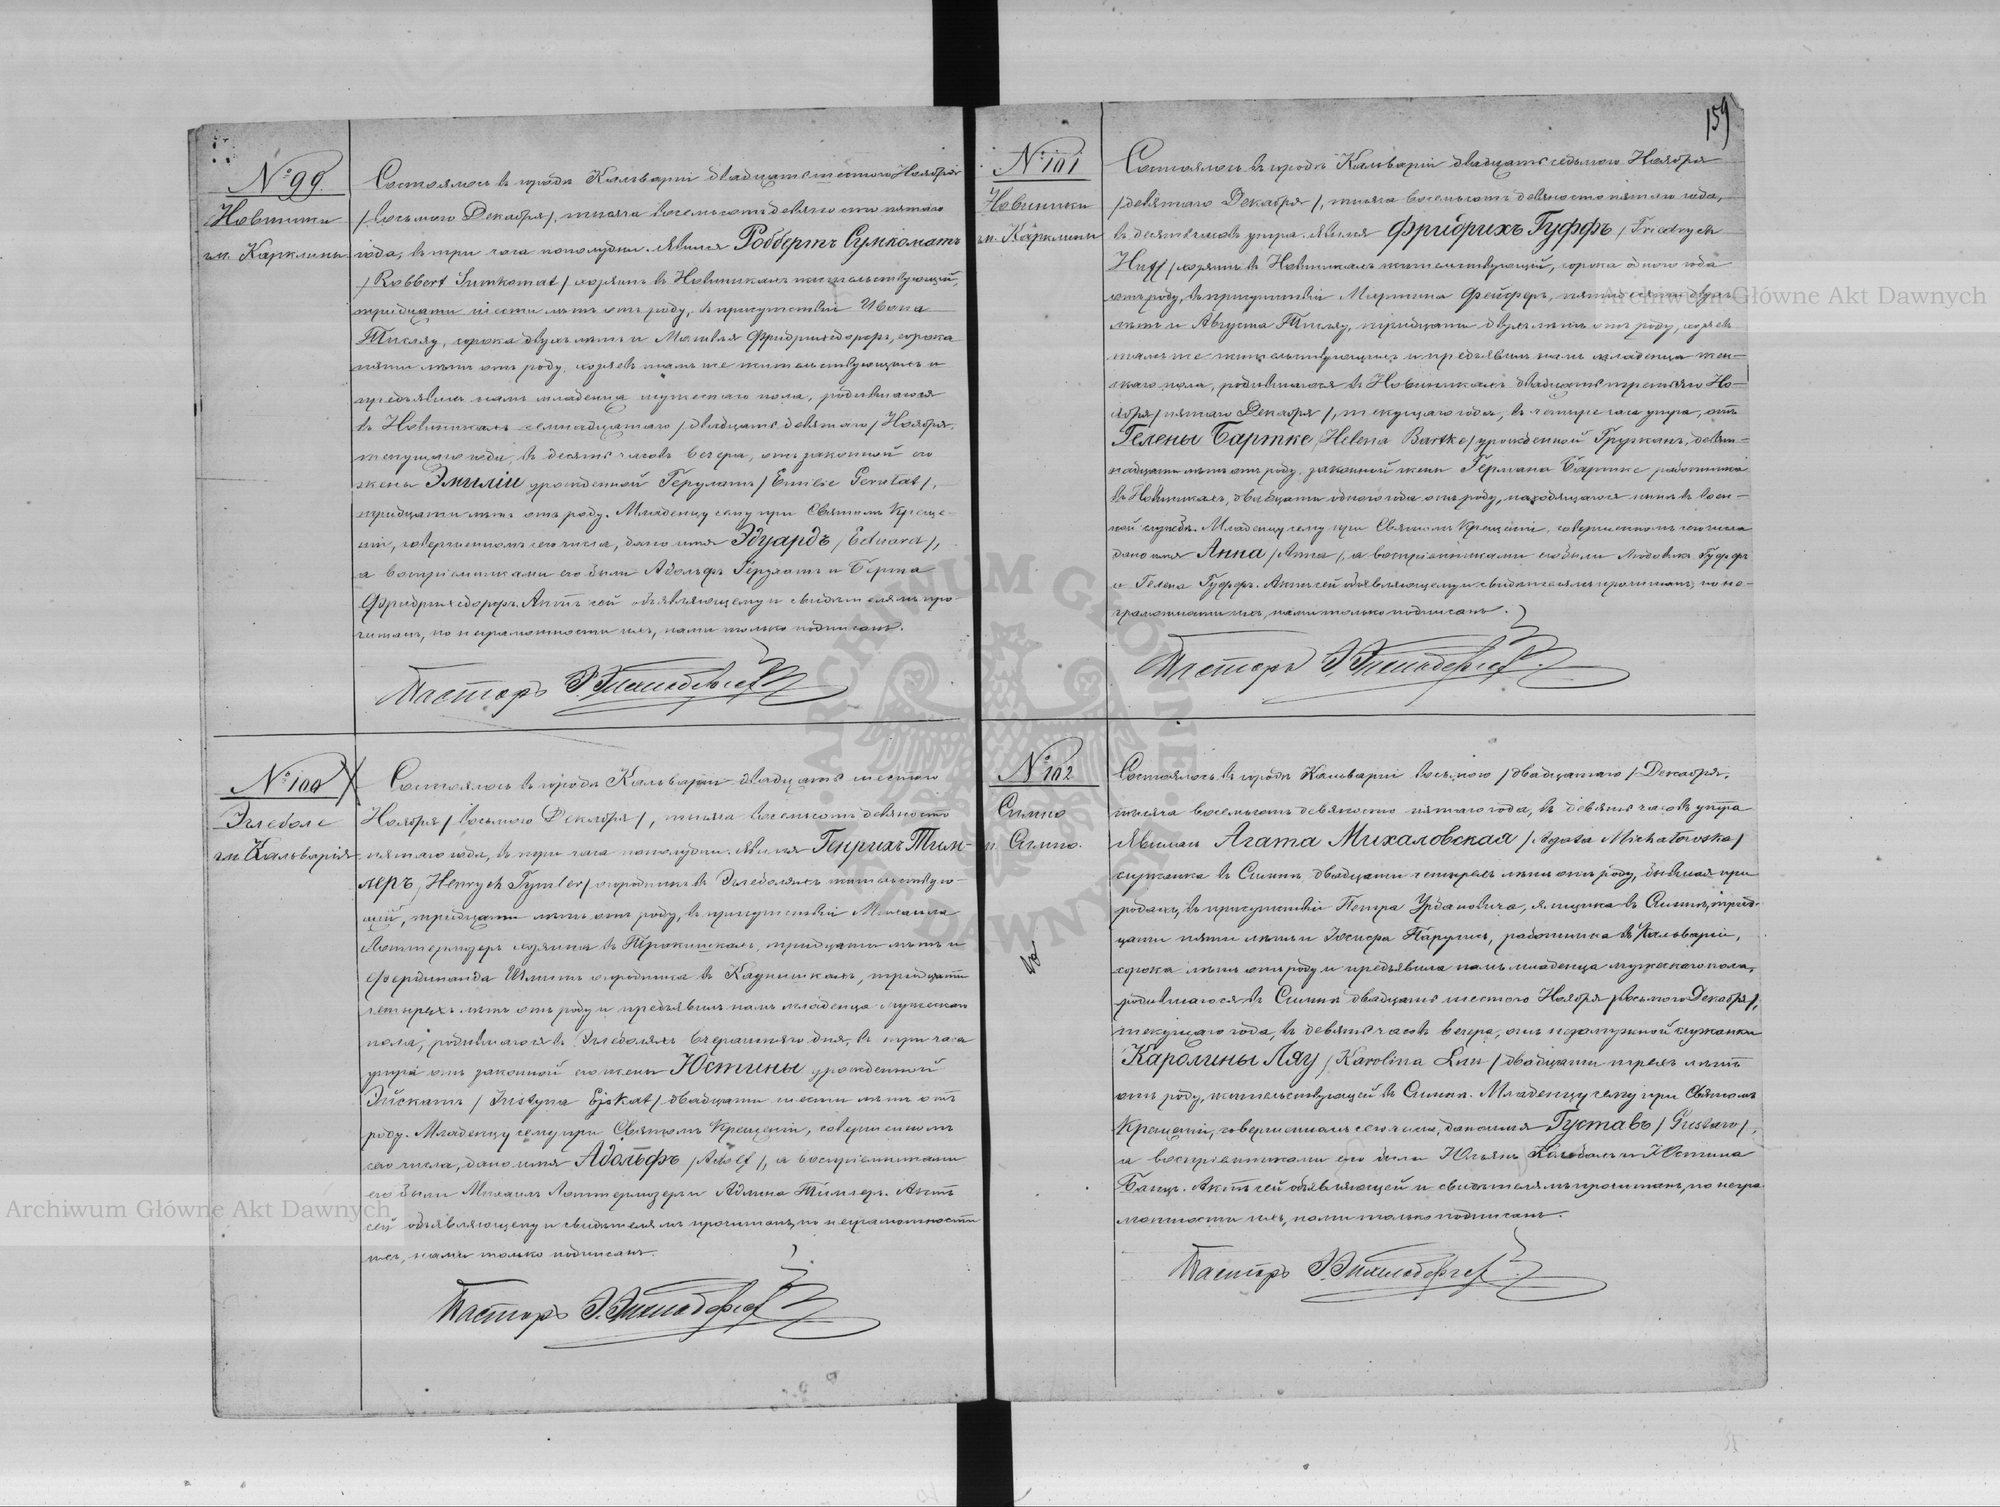 159
№ 99.
Новиники
гм. Карклины
Состоялось въ городѣ Кальваріи двадцать шестого Ноября
/восьмого Декабря/, тысяча восемьсотъ девяносто пятаго
года, въ три часа пополудни. Явился Роббертъ Сумкоматъ
/Robbert Sumkomat/ хозяинъ въ Новиникахъ жительствующій,
тридцати шести лѣтъ отъ роду, въ присутствіи Ивана
сорока двухъ лѣтъ и Фридрихсдорфъ, сорока
пяти лѣтъ отъ роду, хозяевъ тамъ же жительствующихъ и
предъявилъ намъ младенца мужескаго пола, родившагося
въ Новиникахъ семнадцатаго /двадцать девятаго/ Ноября,
текущаго года, въ десять часовъ вечера, отъ законной его
жены Эмиліи урожденной Герулатъ /Emilie Gerulat/,
тридцати лѣтъ отъ роду. Младенцу сему при Святомъ Креще-
ніи, совершенномъ сего числа, дано имя Эдуардъ /Eduard/,
а воспріемниками его были Адольфъ Герулатъ и Берта
Фридрихсдорфъ. Актъ сей объявляющему и свидѣтелямъ про-
читанъ, по неграмотности ихъ, нами только подписанъ.
Пасторъ
№ 100
Эглеболе
гм. Кальварія
Состоялось въ городѣ Кальваріи двадцать шестого
Ноября /восьмого Декабря/, тысяча восемьсотъ девяносто
пятаго года, въ три часа пополудни. Явился Генрихъ Тим-
леръ /Henrych Tymler/ огородникъ въ жительствую-
щій, тридцати лѣтъ отъ роду, въ присутствіи Михаила
хозяина въ тридцати лѣтъ и
Фердинанда Шмитъ огородника въ тридцати
четырехъ лѣтъ отъ роду и предъявилъ намъ младенца мужескаго
пола, родившагося въ вчерашняго дня, въ три часа
утра отъ законной его жены Юстины урожденной
Эйскатъ /Justyna Ejskat/ двадцати шести лѣтъ отъ
роду. Младенцу сему при Святомъ Крещеніи, совершенномъ
сего числа, дано имя Адольфъ /Adolf/, а воспріемниками
его были Михаилъ и Тимлеръ. Актъ
сей объявляющему и свидѣтелямъ прочитанъ, по неграмотности
ихъ, нами только подписанъ.
Пасторъ
№ 101
Новиники
гм. Карклины
Состоялось въ городѣ Кальваріи двадцать седьмого Ноября
/девятаго Декабря/, тысяча восемьсотъ девяносто пятаго года,
въ десять часовъ утра. Явился Фридрихъ Гуффъ /Friedrych
Huff/ хозяинъ въ Новиникахъ жительствующій, сорока одного года
отъ роду, въ присутствіи Мартина Фейферъ, пятидесяти двухъ
лѣтъ и Августа тридцати двухъ лѣтъ отъ роду, хозяевъ
тамъ же жительствующихъ и предъявилъ намъ младенца жен-
скаго пола, родившагося въ Новиникахъ двадцать третьяго Но-
ября /пятаго Декабря/, текущаго года, въ четыре часа утра, отъ
Гелены Бартке /Helena Bartke/ урожденной девят-
надцати лѣтъ отъ роду, законной жены Германа Бартке работника
въ Новиникахъ, двадцати одного года отъ роду, находящагося нынѣ въ воен-
ной службѣ. Младенцу сему при Святомъ Крещеніи, совершенномъ сего числа
дано имя Анна /Anna/, а воспріемниками его были Людовикъ Гуффъ
и Гелена Гуффъ. Актъ сей объявляющему и свидѣтелямъ прочитанъ, по не-
грамотности ихъ, нами только подписанъ.
Пасторъ
№ 102
Симно
г. Симно.
Состоялось въ городѣ Кальваріи восьмого /двадцатаго/ Декабря,
тысяча восемьсотъ девяносто пятаго года, въ девять часовъ утра
Явилась Агата Михаловская /Agata Michałowska/
служанка въ Симнѣ, двадцати четырехъ лѣтъ отъ роду, бывшая при
родахъ, въ присутствіи Петра Урбановича, ямщика въ Симнѣ, трид-
цати пяти лѣтъ и Іосифа работника въ Кальваріи,
сорока лѣтъ отъ роду и предъявила намъ младенца мужескаго пола,
родившагося въ Симнѣ двадцать шестого Ноября /восьмого Декабря/,
текущаго года, въ девять часовъ вечера, отъ незамужной служанки
Каролины Лау /Karolina Lau/ двадцати трехъ лѣтъ
отъ роду, жительствующей въ Симнѣ. Младенцу сему при Святомъ
Крещеніи, совершенномъ сего числа, дано имя Густавъ /Gustaw/,
а воспріемниками его были Юльянъ и Юстина
Актъ сей объявляющей и свидѣтелямъ прочитанъ, по негра-
мотности ихъ, нами только подписанъ.
Пасторъ
Archiwum Główne Akt Dawnych
Archiwum Główne Akt Dawnych
ARCHIWUM GŁÓWNE AKT DAWNYCH